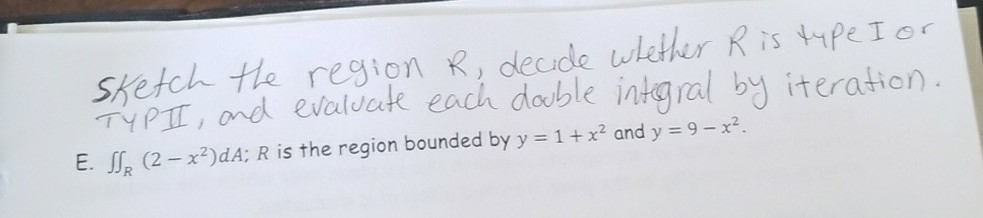 Sketch the region R, decide whether R is type I or
TYPE II, and evaluate each double integral by iteration.
E. ∬R (2 – x²)dA; R is the region bounded by y = 1 + x² and y = 9 – x².